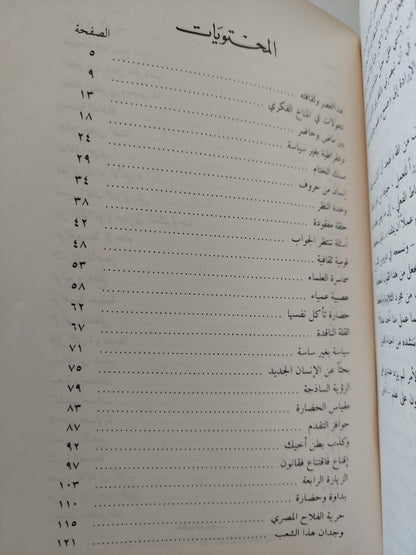 المحتويات
الصفحة
هذا العصر وثقافته ٥
تحولات في المناخ الفكري ٩
بين ماض وحاضر ١٣
ديمقراطية بغير سياسة ١٨
مسك الختام ٢٤
إنسان من حروف ٢٩
وحدة النظر ٣٤
حلقة مفقودة ٣٨
أسئلة تنتظر الجواب ٤٢
قومية ثقافية ٤٨
سماسرة العلماء ٥٣
عصبية عمياء ٥٨
حضارة تأكل نفسها ٦٢
القلة الناقدة ٦٧
سياسة بغير ساسة ٧١
بحثا عن الإنسان الجديد ٧٥
الرؤية الساذجة ٧٩
مقياس الحضارة ٨٣
حوافز التقدم ٨٧
وكذب بطن أخيك ٩٢
إقناع فاقتناع فقانون ٩٧
الزيارة الرابعة ١٠٣
بداوة وحضارة ١١٠
حرية الفلاح المصري ١١٥
وجدان هذا الشعب ١٢١